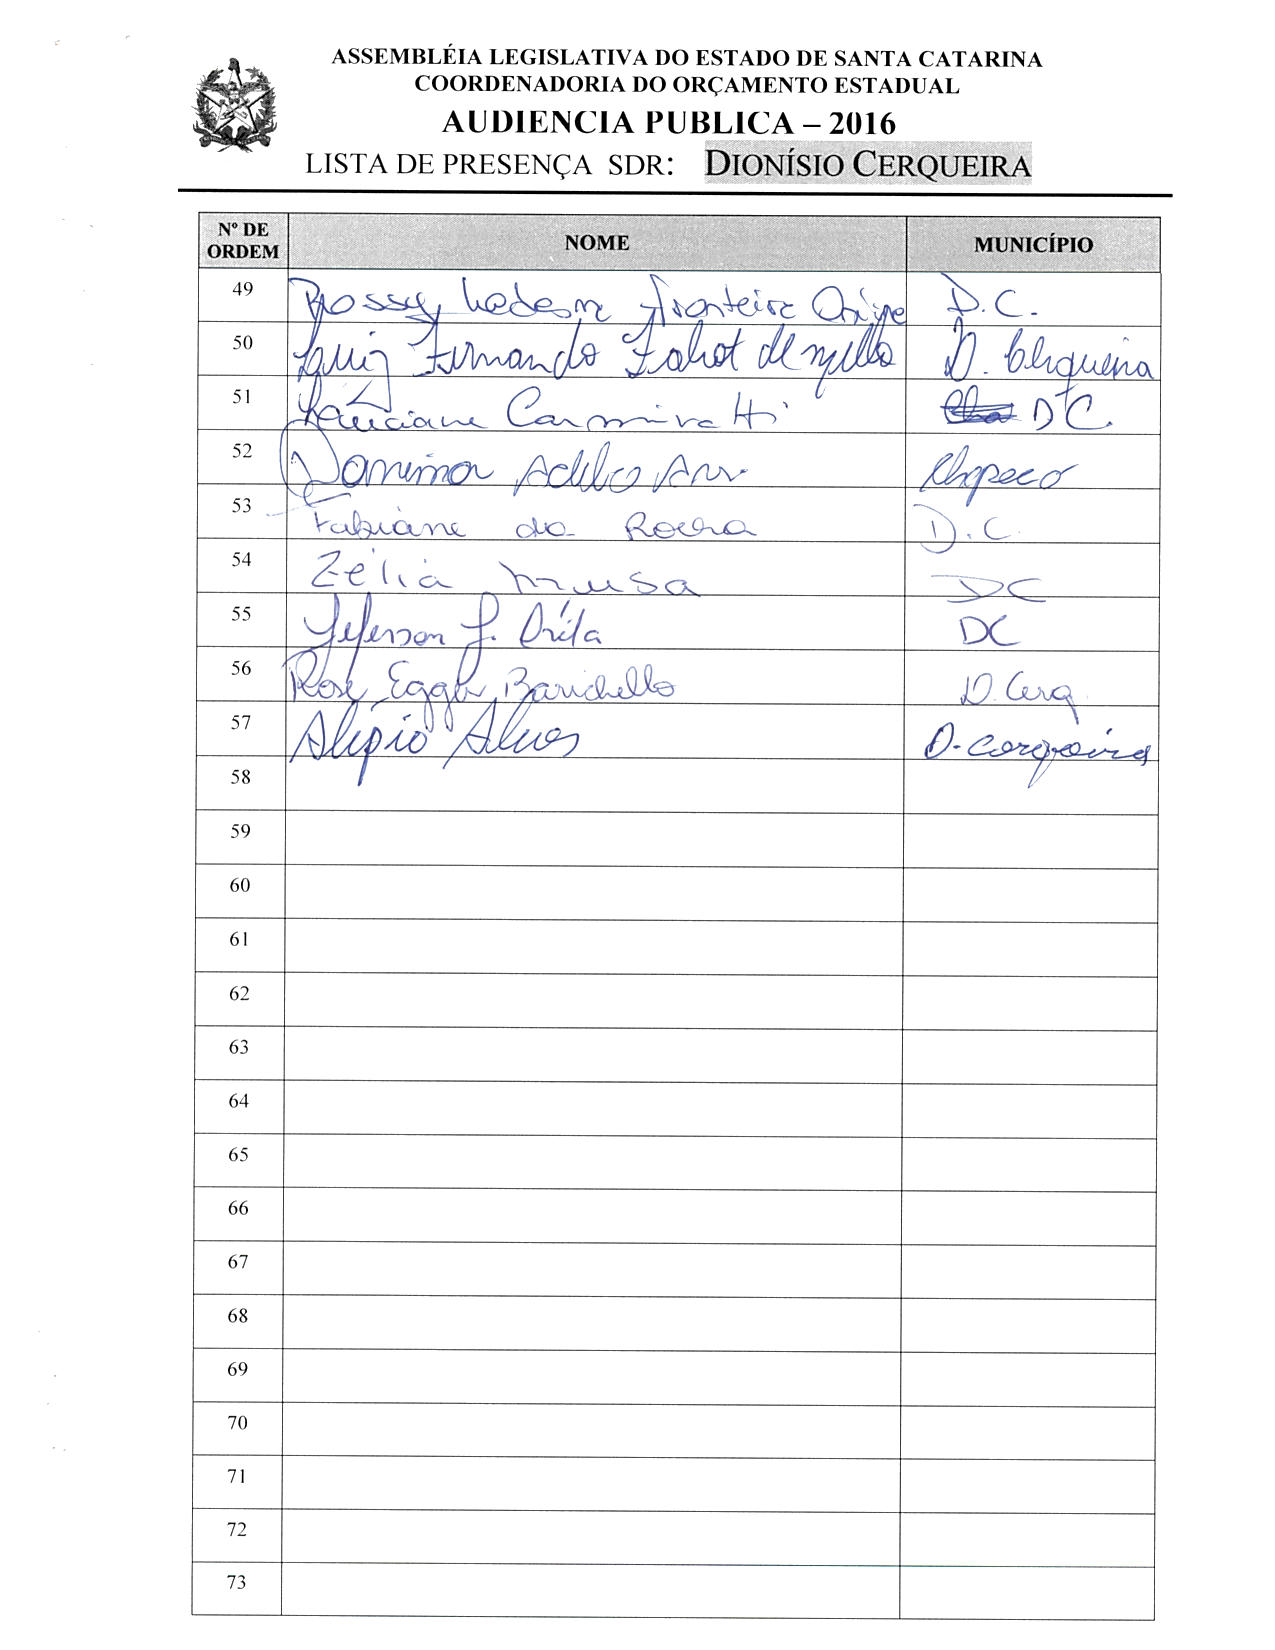 ASSEMBLÉIA LEGISLATIVA DO ESTADO DE SANTA CATARINA
COORDENADORIA DO ORÇAMENTO ESTADUAL
AUDIENCIA PUBLICA – 2016
LISTA DE PRESENÇA SDR: DIONÍSIO CERQUEIRA
Nº DE ORDEM NOME MUNICÍPIO
49 Rossy Ledesma Fronteira D.C.
50 Luiz Fernando de Mello D. Cerqueira
51 Luciane Carminatti DC.
52 Chapecó
53 Fabiane da Rocha D.C.
54 Zélia Musa DC
55 Jeferson J. DC
56 Rose Egger Barichello D. Cerq
57 Alipio Alves D. Cerqueira
58
59
60
61
62
63
64
65
66
67
68
69
70
71
72
73